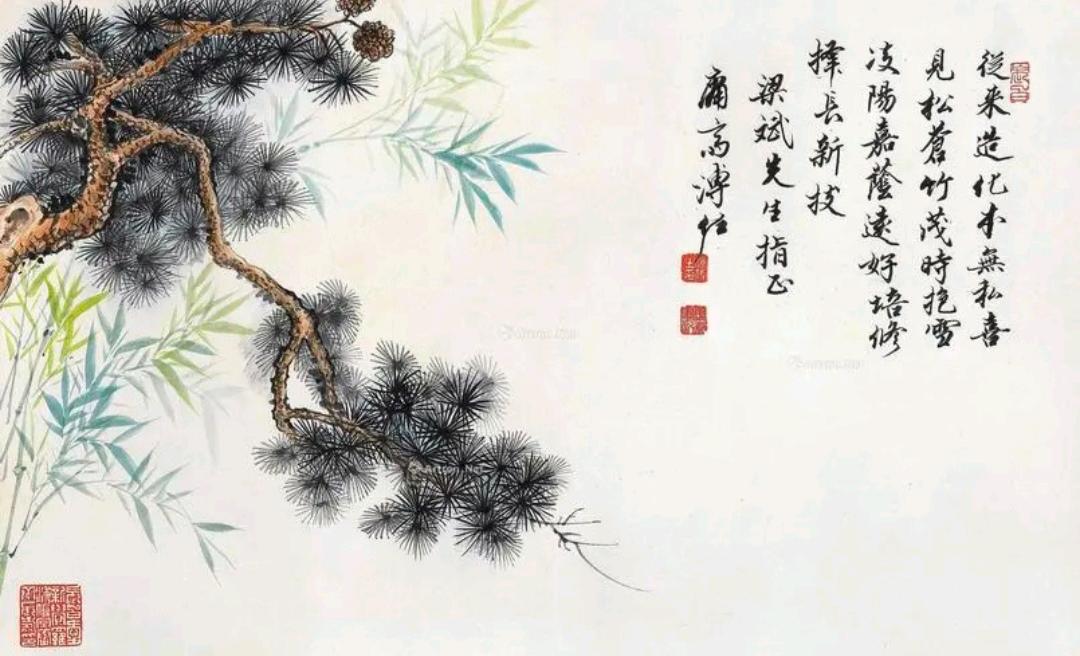 從来造化本無私喜
見松蒼竹茂時抱雪
凌陽嘉蔭遠好培修
擇長新技
梁斌先生指正
庸斋溥任